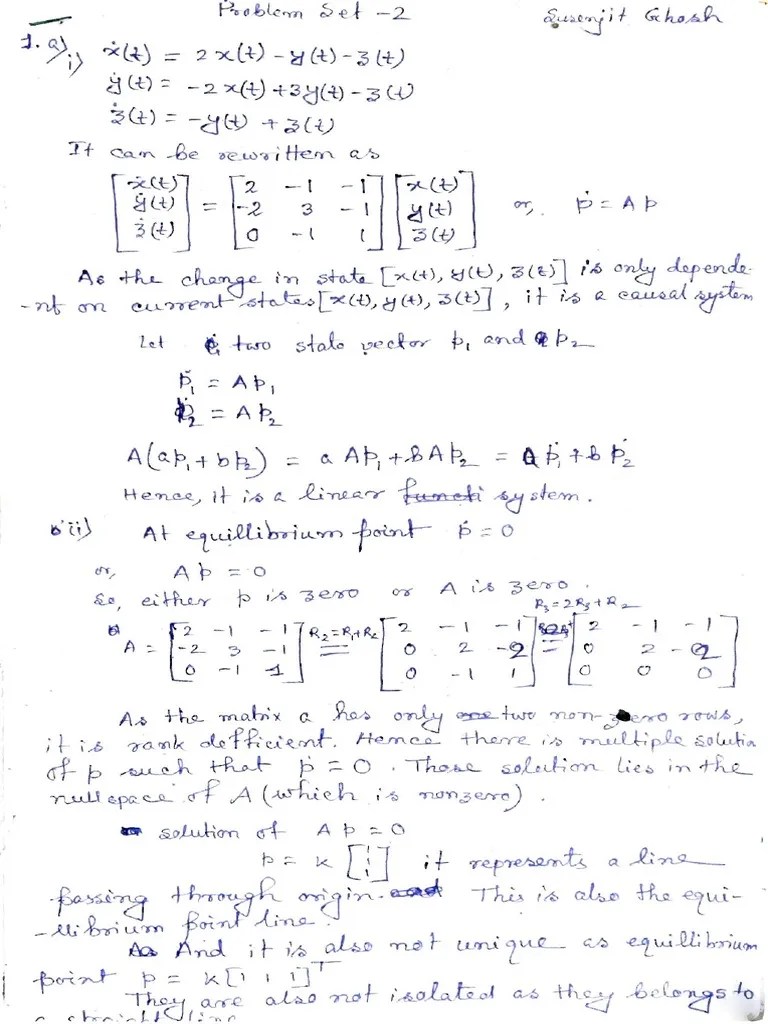 Problem Set -2
Susenjit Ghosh
1. a) i) ẋ(t) = 2x(t) - y(t) - 3(t)
ẏ(t) = -2x(t) + 3y(t) - 3(t)
ż(t) = -y(t) + 3(t)
It can be rewritten as
[ẋ(t) ẏ(t) ż(t)] = [2 -1 -1; -2 3 -1; 0 -1 1] [x(t) y(t) z(t)] or, ṗ = Ap
As the change in state [x(t), y(t), z(t)] is only depende-
-nt on current states [x(t), y(t), z(t)], it is a causal system
Let two state vector p₁ and p₂
ṗ₁ = Ap₁
ṗ₂ = Ap₂
A(ap₁ + bp₂) = a Ap₁ + b Ap₂ = aṗ₁ + b ṗ₂
Hence, it is a linear functi system.
ii) At equillibrium point ṗ = 0
or, Ap = 0
So, either p is zero or A is zero.
A = [2 -1 -1; -2 3 -1; 0 -1 1] R₂=R₁+R₂ = [2 -1 -1; 0 2 -2; 0 -1 1] R₃=2R₃+R₂ = [2 -1 -1; 0 2 -2; 0 0 0]
As the matrix a has only one two non-zero rows,
it is rank defficient. Hence there is multiple solutio
of p such that ṗ = 0. Those solution lies in the
nullspace of A (which is nonzero).
solution of Ap = 0
p = k [1 1 1] it represents a line
passing through origin. and This is also the equi-
-llibrium point line.
As And it is also not unique as equillibrium
point p = k[1 1 1]ᵀ
They are also not isolated as they belongs to
a straight line